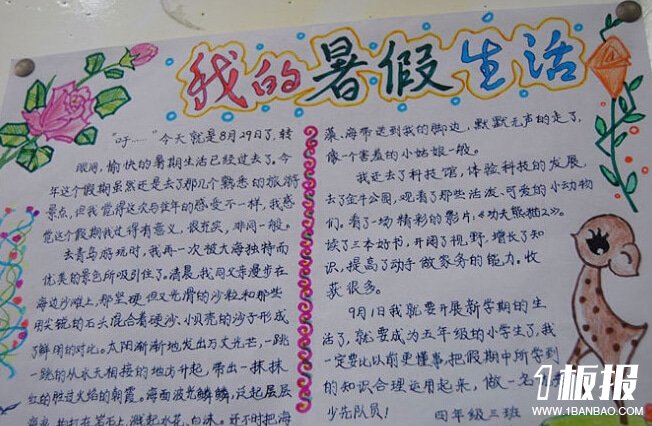 我的暑假生活
"吁……"今天就是8月29日了,转
眼间,愉快的暑期生活已经过去了。今
年这个假期虽然还是去了那几个熟悉的旅游
景点,但我觉得这次与往年的感受不一样,我感
觉这个假期我过得有意义,很充实,非同一般。
去青岛游玩时,我再一次被大海独特而
优美的景色所吸引住了。清晨,我同父亲漫步在
海边沙滩上,那坚硬但又光滑的沙粒和那些
用尖锐的石头混合着硬沙、小贝壳的沙子形成
了鲜明的对比。太阳渐渐地发出万丈光芒,一跳
一跳的从水天相接的地方升起,带出一抹抹
红的胜过火焰的朝霞。海面波光鳞鳞,泛起层层
拍打在礁石上,溅起水花、白沫。还不时把海
藻、海带送到我的脚边,默默无声的走了,
像一个害羞的小姑娘一般。
我还去了科技馆,体验科技的发展,
去了金牛公园,观看了那些活泼、可爱的小动物
们。看了一场精彩的影片,《功夫熊猫2》。
读了三本好书,开阔了视野,增长了知
识,提高了动手做家务的能力。收
获很多。
9月1日我就要开展新学期的生
活了,就要成为五年级的小学生了,我
一定要比以前更懂事,把假期中所学到
的知识合理运用起来,做一名
少先队员!
四年级三班
1板报
WWW.1BANBAO.COM